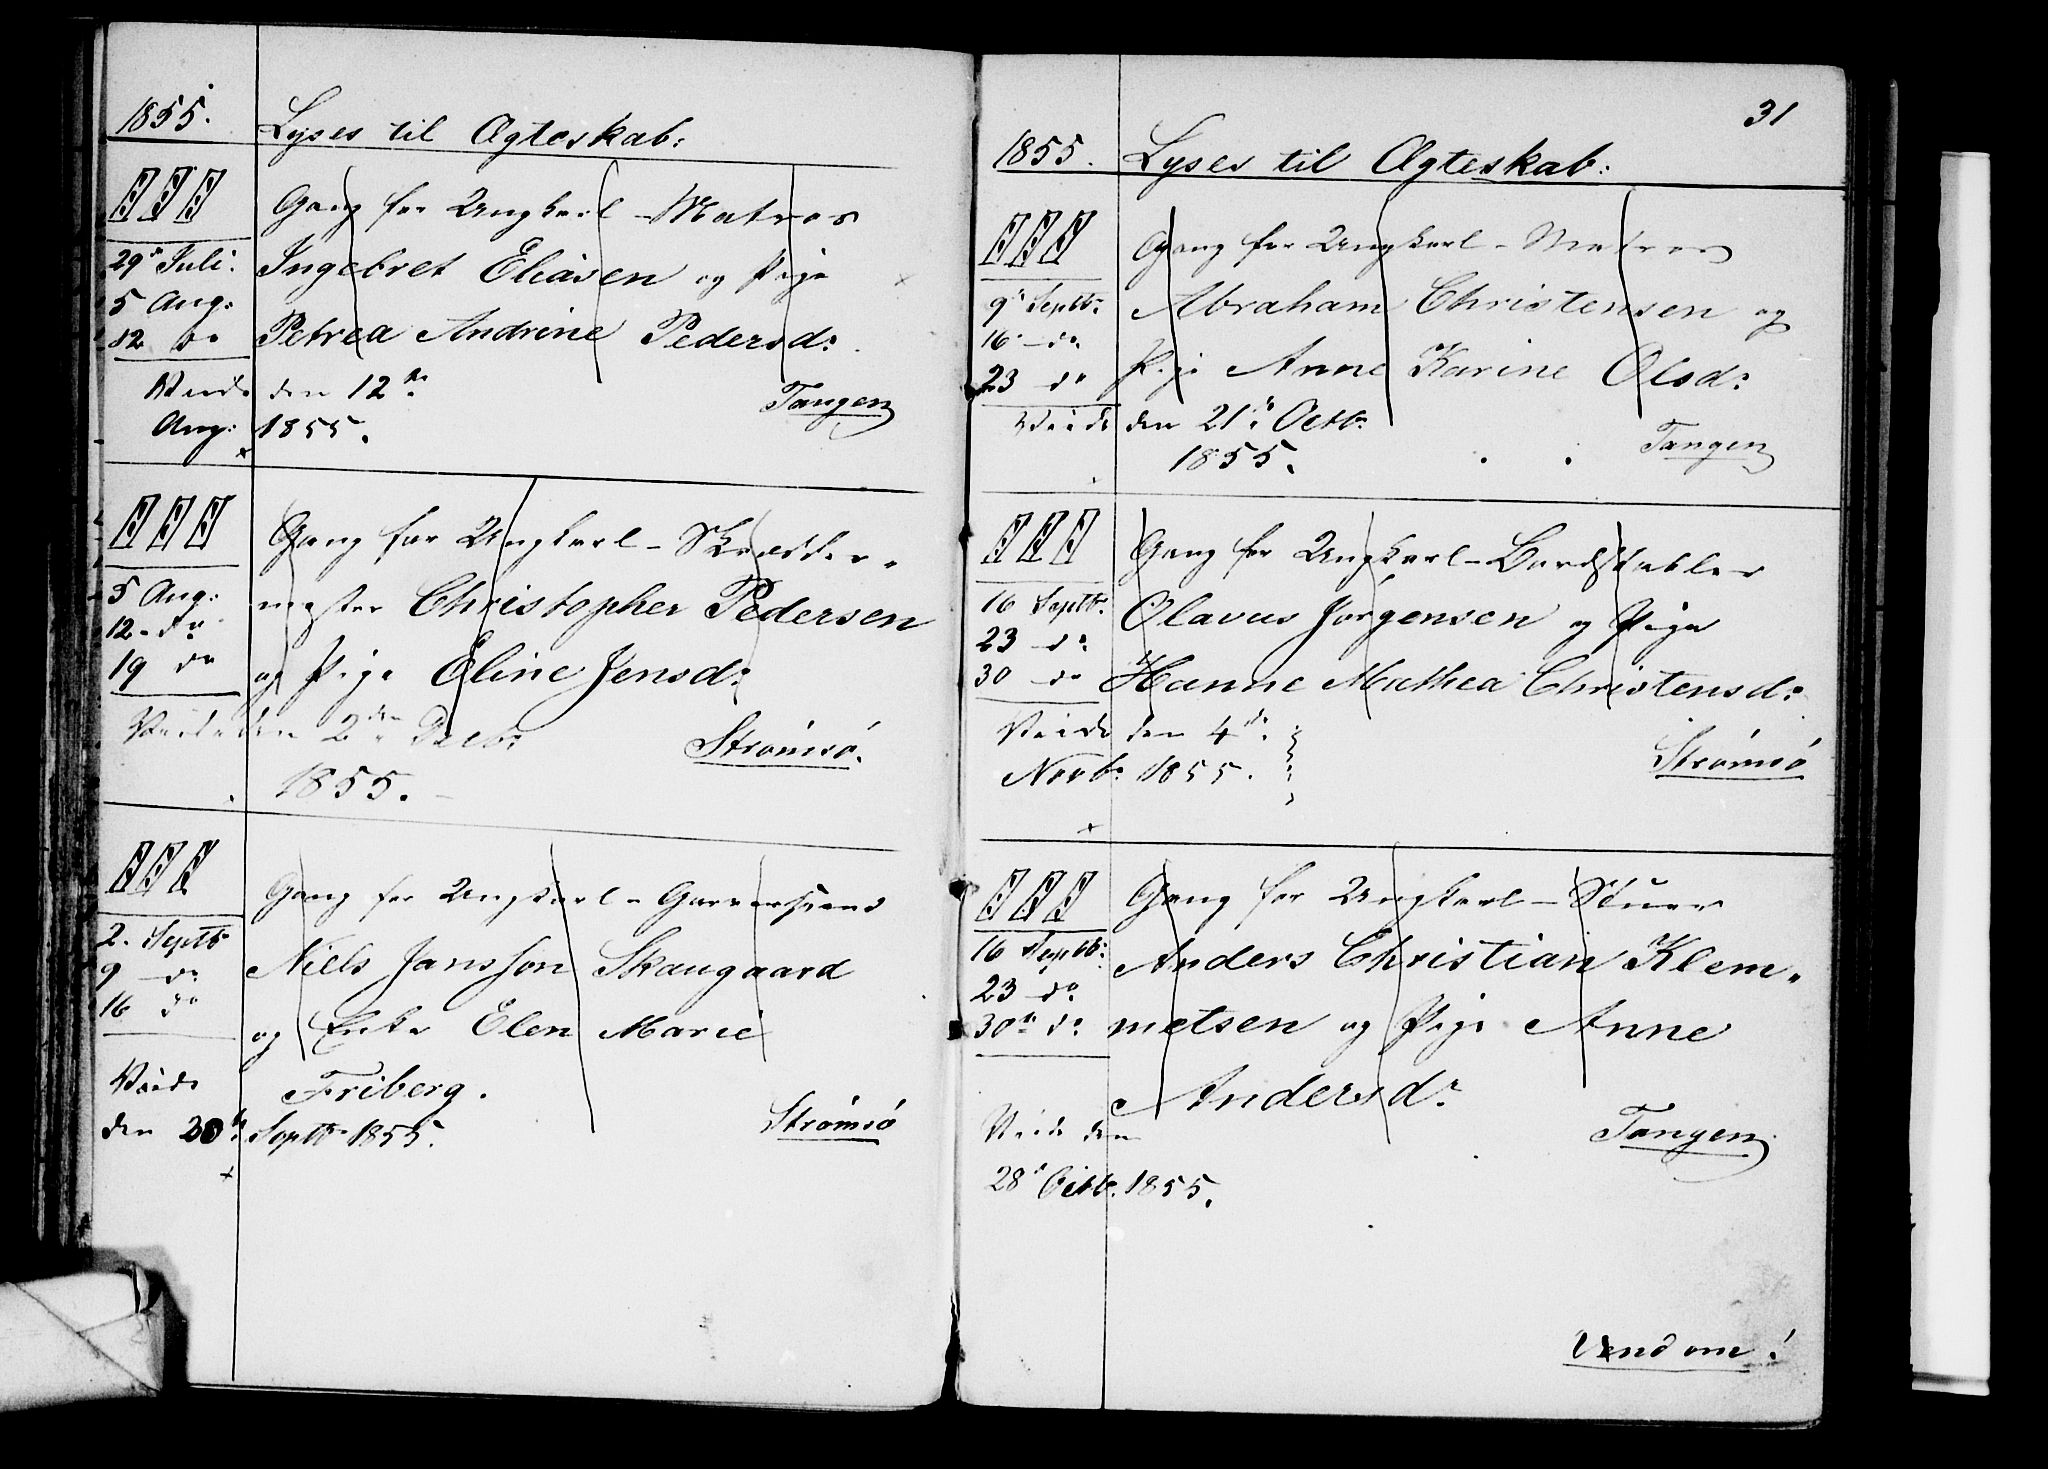 1855. Lyses til Ægteskab:
I II III Gang for Ungkarl-Matros
29de Juli. Ingebret Eliasen og Pige
5 Aug: Petrea Andrine Pedersd:
12 do
Viede den 12te Tangen
Aug: 1855.
I II III Gang for Ungkarl-Skrædder-
5 Aug: mester Christopher Pedersen
12-do og Pige Eline Jensd:
19 do
Viede den 2den Decbr Strømsø.
1855.
I II III Gang for Ungkarl-Garversvend
2. Septb Niels Jansson Skaugaard
9 -do
16 do og Enke Elen Marie
Viede Friberg. Strømsø
den 20de Septb 1855.
31
1855. Lyses til Ægteskab:
I II III Gang for Ungkarl-Matros
9de Septb: Abraham Christensen og
16 -do
23 do Pige Anne Karine Olsd:
Viede den 21de Octb:
1855. Tangen
I II III Gang for Ungkarl-Bordstabler
16 Septb: Olavus Jørgensen og Pige
23 -do
30 do Hanne Mathea Christensd:
Viede den 4de
Novb: 1855. Strømsø
I II III Gang for Ungkarl-Stuer
16 Septb: Anders Christian Klem-
23 -do
30te do metsen og Pige Anne
Andersd:
Viede den Tangen
28de Octb. 1855.
Vend om!